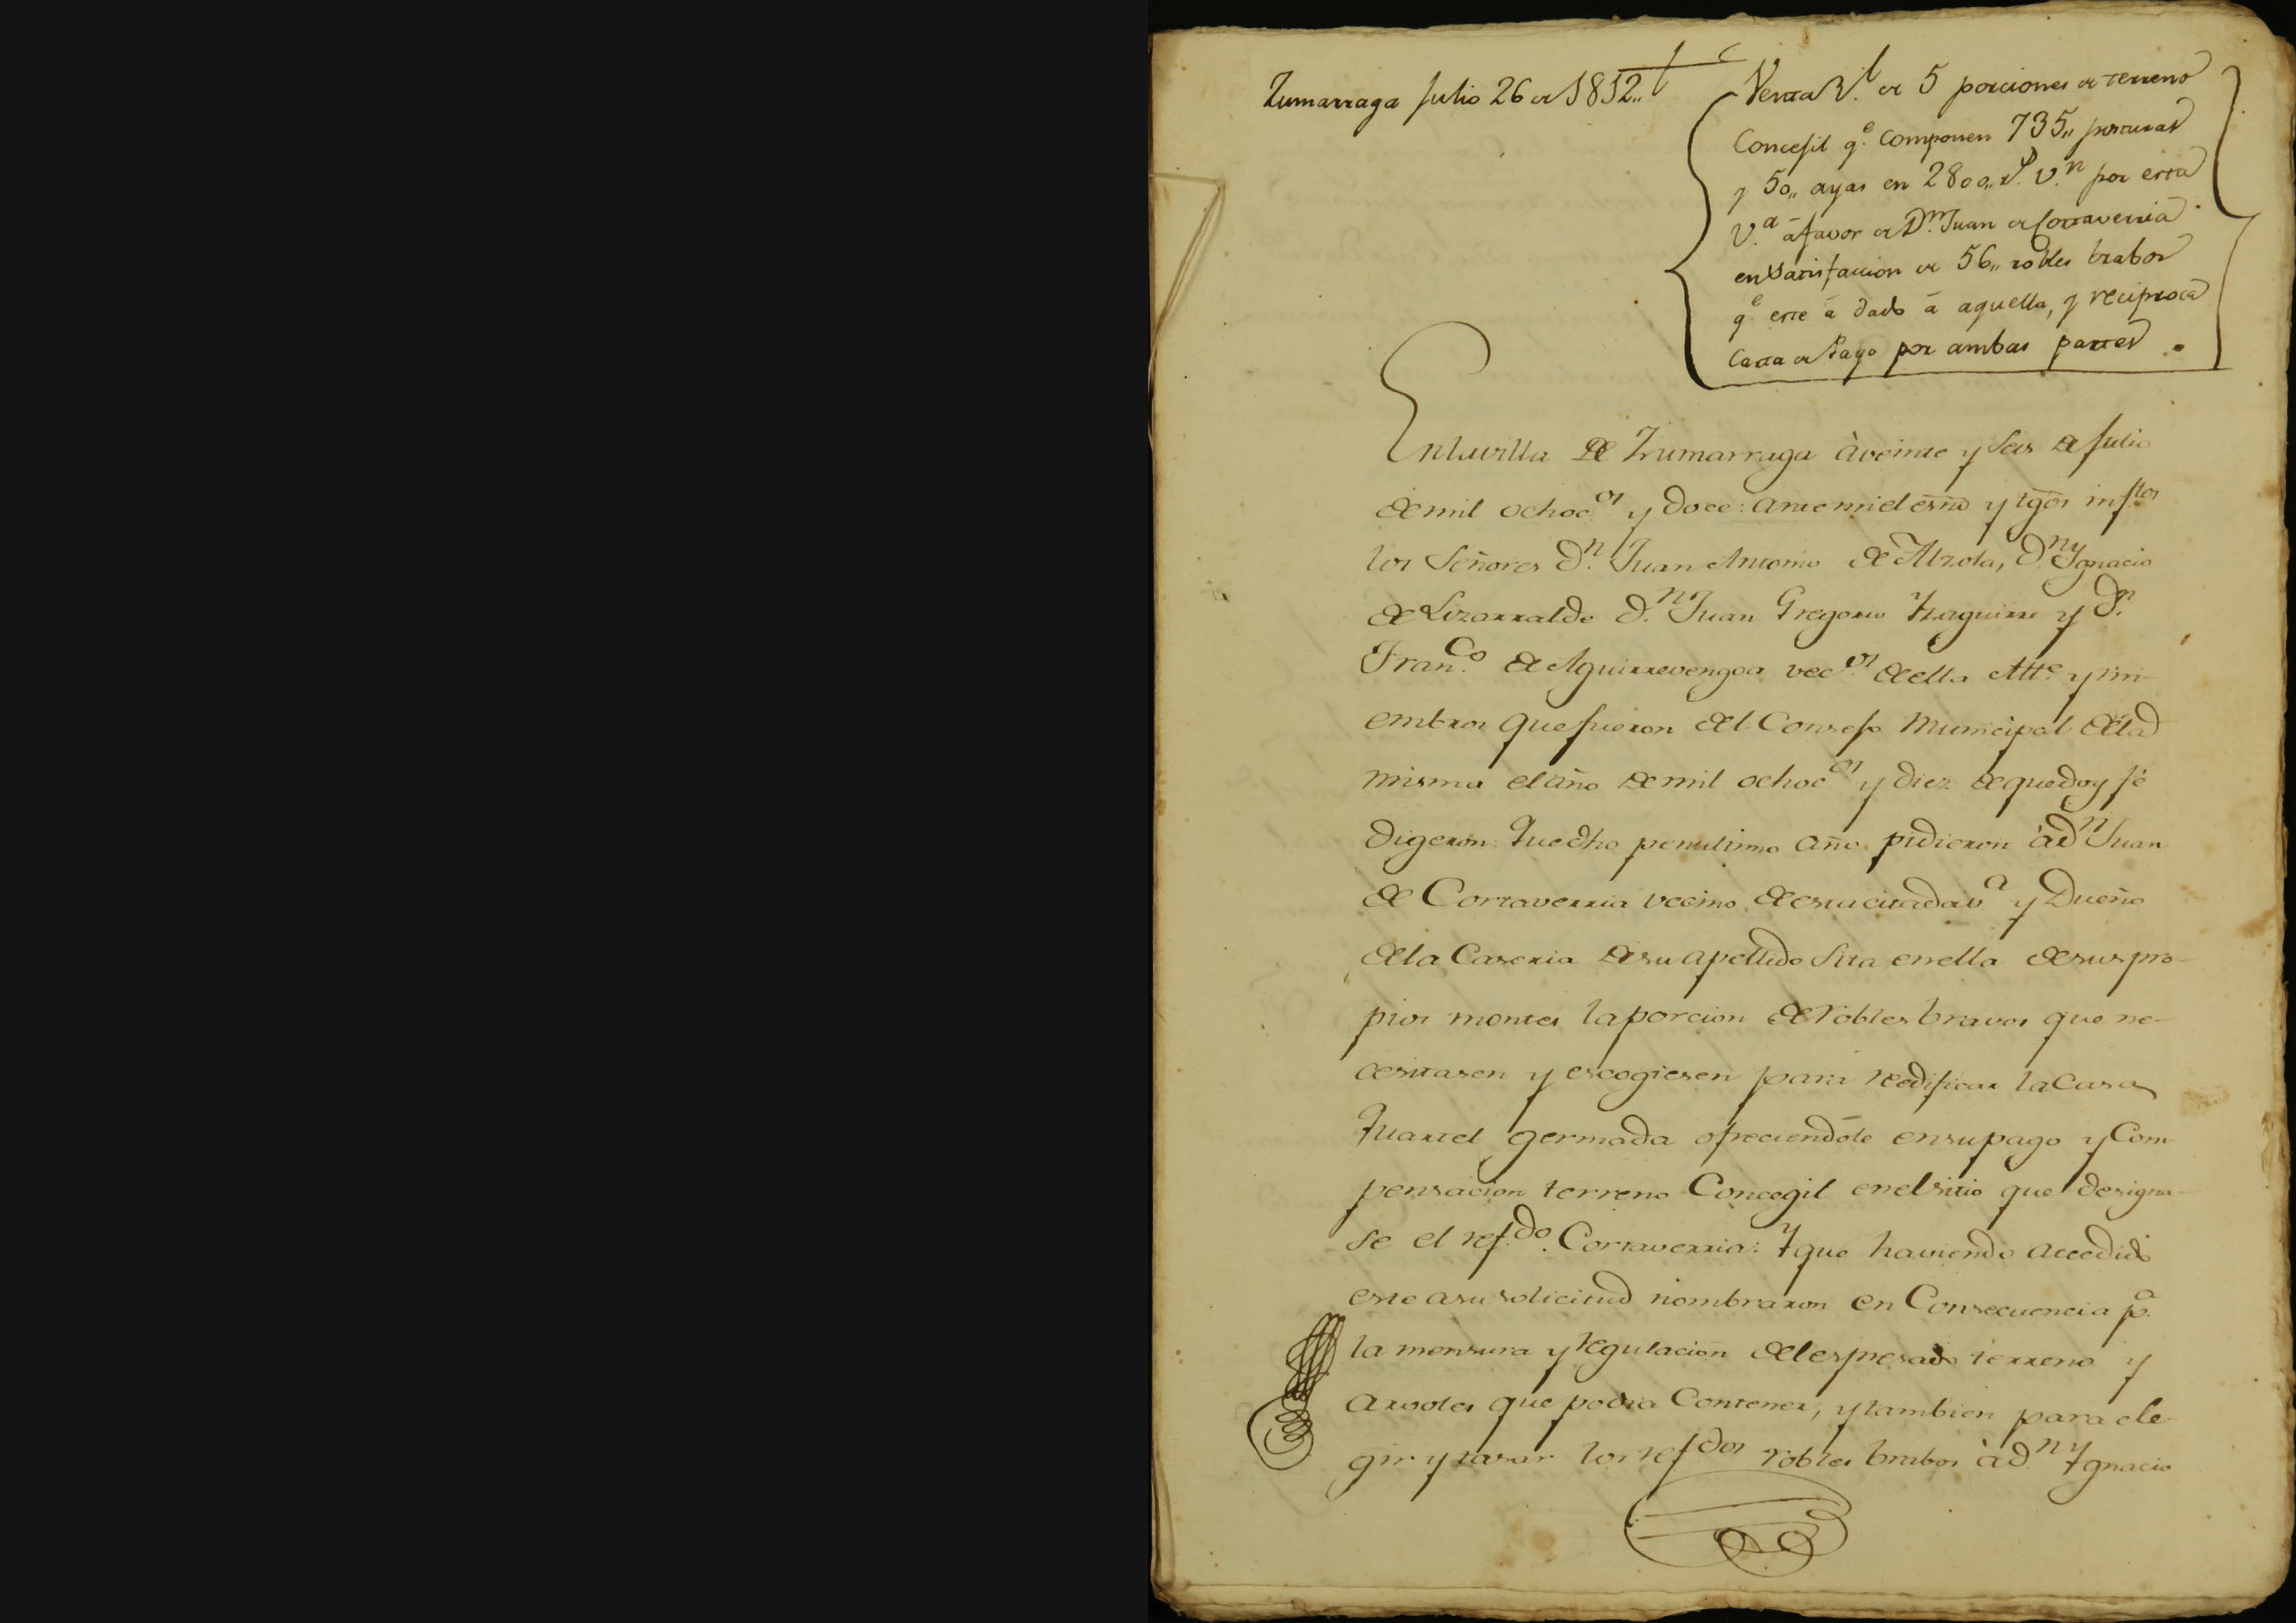 Zumarraga Julio 26 de 1812,,
Venta Rl. de 5 porciones de terreno
Concejil qe. componen 735,, posturas
y 50,, ayas en 2800,, rs. vn. por esta
Va. á favor de Dn. Juan de Cortaverria
en satisfaccion de 56,, robles brabos
qe. este á dado á aquella, y reciproca
Carta de Pago por ambas partes.
En la villa de Zumarraga à veinte y seis de Julio
de mil ochocos. y doce: ante mi el esño y tgõs infros.
los Señores Dn. Juan Antonio de Alzola, Dn. Ygnacio
de Lizarralde Dn. Juan Gregorio Yzaguirre y Dn.
Franco. de Aguirrevengoa vecos. de ella Alte. y mi-
embros que fueron del Consejo Municipal de la
misma el año de mil ochocos. y diez de que doy fé
digeron: Que dho penultimo año pidieron àdn. Juan
de Cortaverria vecino de esta citada va. y Dueño
de la Caseria de su apellido sita en ella de sus pro-
pios montes la porcion de robles bravos que ne-
cesitasen y escogiesen para reedificar la casa
Quartel germada ofreciendole en su pago y Com-
pensacion terreno Concegil en el sitio que designa-
se el refdo. Cortaverria: Y que haviendo accedido
este a su solicitud nombraron en Consecuencia pa.
la mensura y regulacion del espresado terreno y
arvoles que podia Contener, y tambien para ele-
gir y tasar los refdos robles brabos àdn. Ygnacio